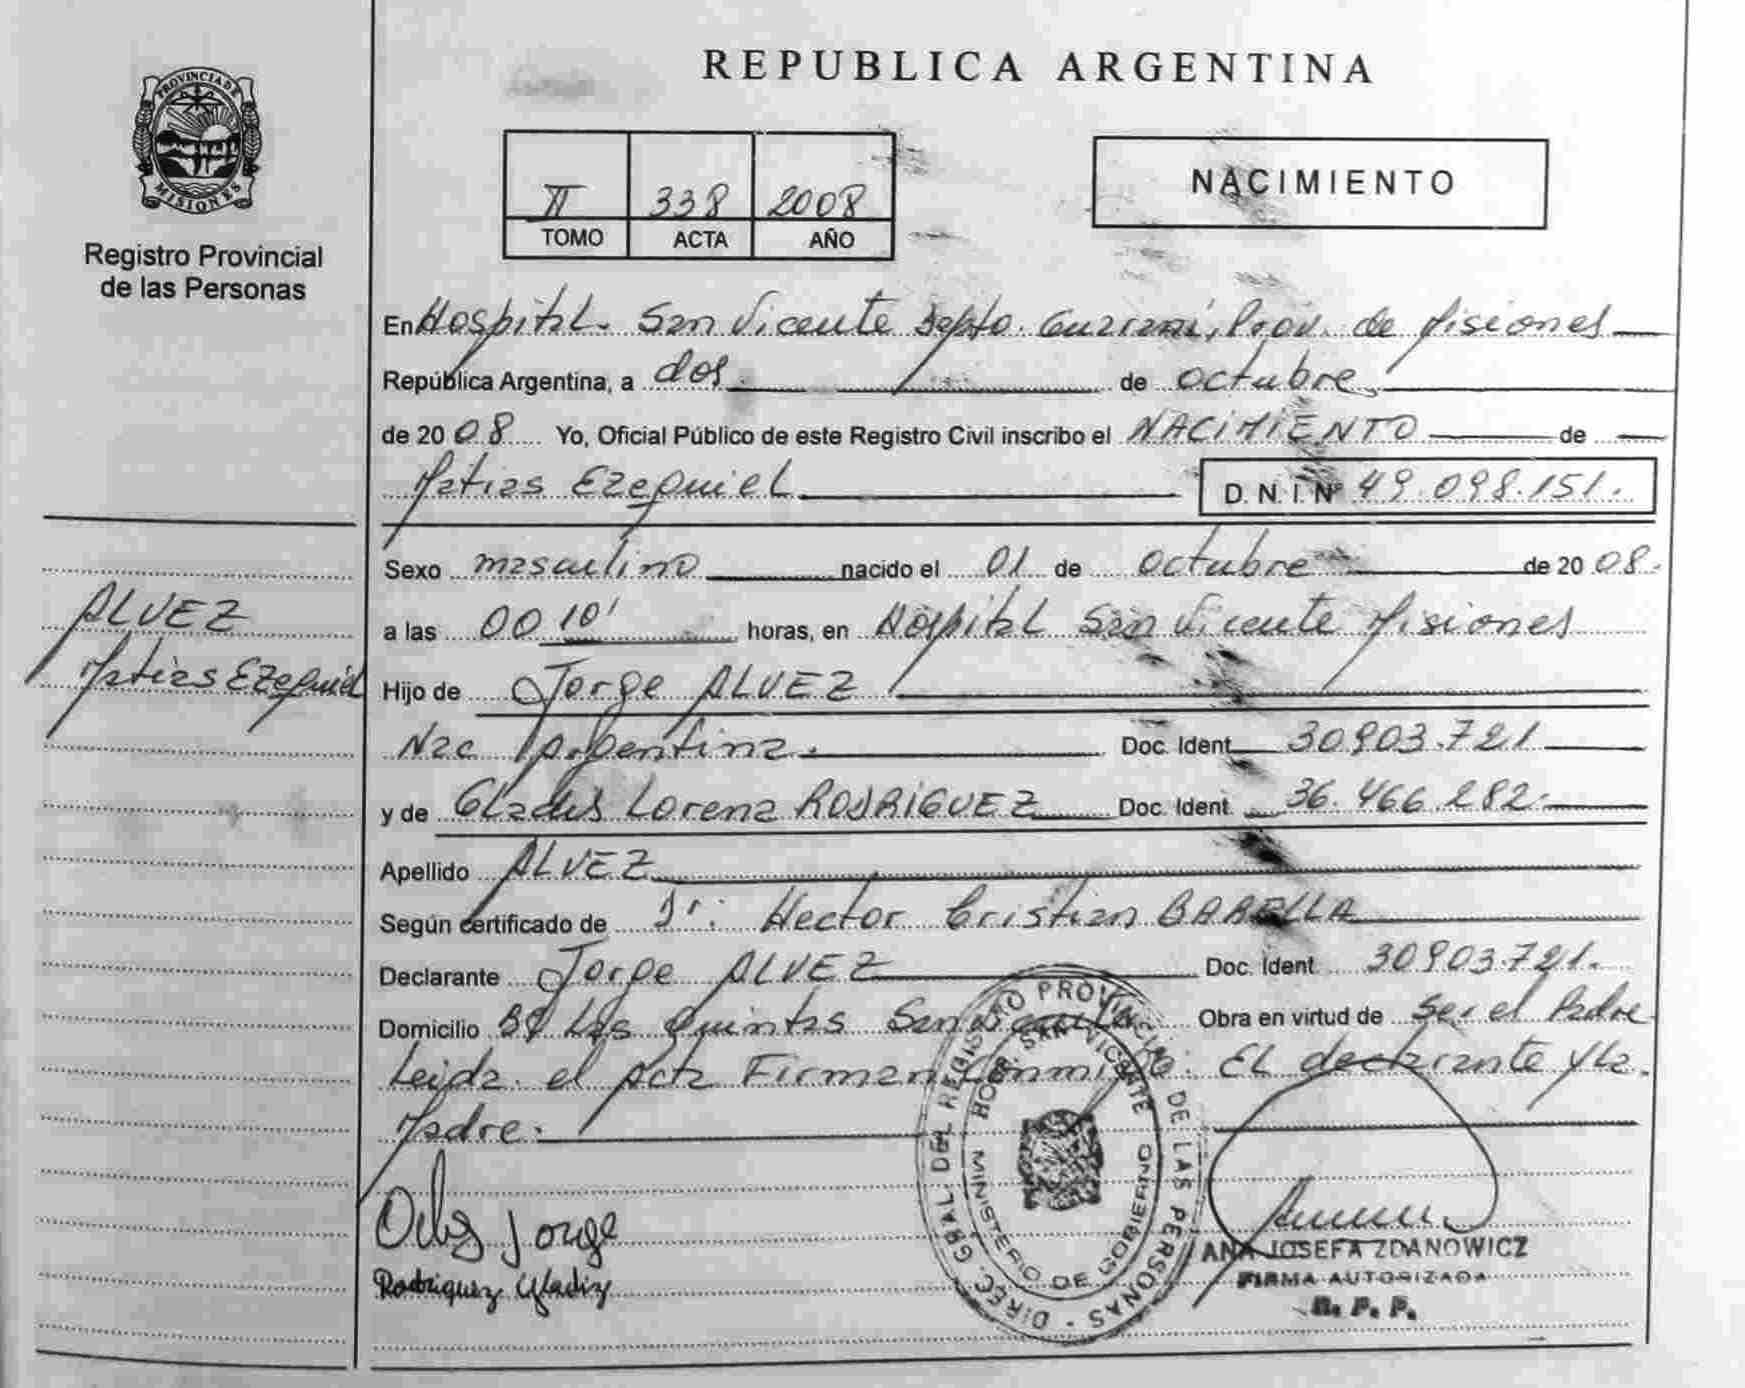 PROVINCIA DE
MISIONES
Registro Provincial
de las Personas
ALVEZ
Matias Ezequiel
REPUBLICA ARGENTINA
II 338 2008
TOMO ACTA AÑO
NACIMIENTO
En Hospital. San Vicente Depto. Guarani, Prov. de Misiones
República Argentina, a dos de octubre
de 20 08 Yo, Oficial Público de este Registro Civil inscribo el NACIMIENTO de
Matias Ezequiel D.N.I. Nº 49.098.151.
Sexo masculino nacido el 01 de octubre de 20 08.
a las 00 10' horas, en Hospital San Vicente Misiones
Hijo de Jorge ALVEZ
Nac Argentina. Doc. Ident. 30903.721
y de Gladis Lorena RODRIGUEZ Doc. Ident. 36.466.282.
Apellido ALVEZ
Según certificado de Dr: Hector Cristian BARELLA
Declarante Jorge ALVEZ Doc. Ident. 30903.721.
Domicilio Bº Las Quintas San Vicente Obra en virtud de ser el Padre
Leida el Acta Firman Conmigo: EL declarante y la
Madre.
Jorge
Rodriguez Gladiz
DIREC. GRAL. DEL REGISTRO PROVINCIAL DE LAS PERSONAS
HOSP. SAN VICENTE
MINISTERIO DE GOBIERNO
ANA JOSEFA ZDANOWICZ
FIRMA AUTORIZADA
R. P. P.